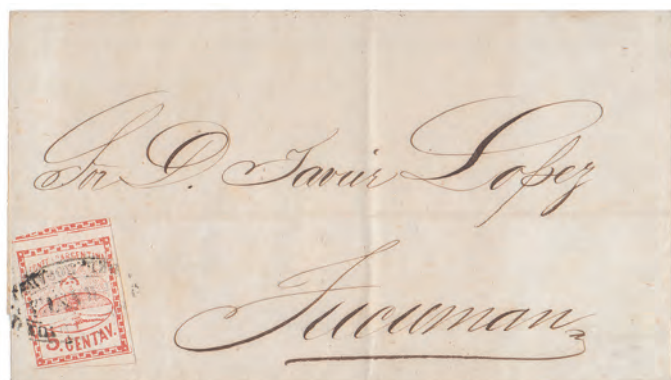 Sor D. Javier Lopez
Tucuman
5. CENTAV.